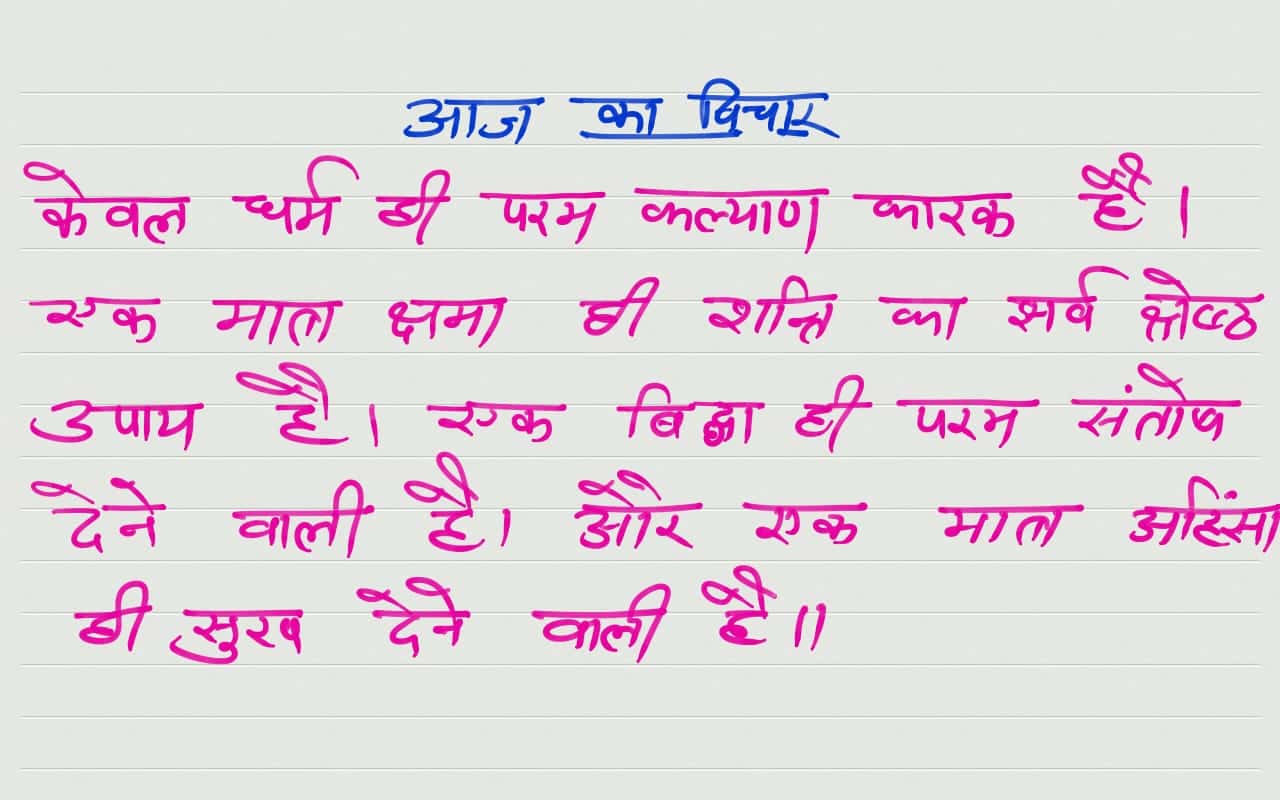 आज का विचार
केवल धर्म ही परम कल्याण कारक है।
एक मात्र क्षमा ही शान्ति का सर्व श्रेष्ठ
उपाय है। एक विद्या ही परम संतोष
देने वाली है। और एक मात्र अहिंसा
ही सुख देने वाली है॥